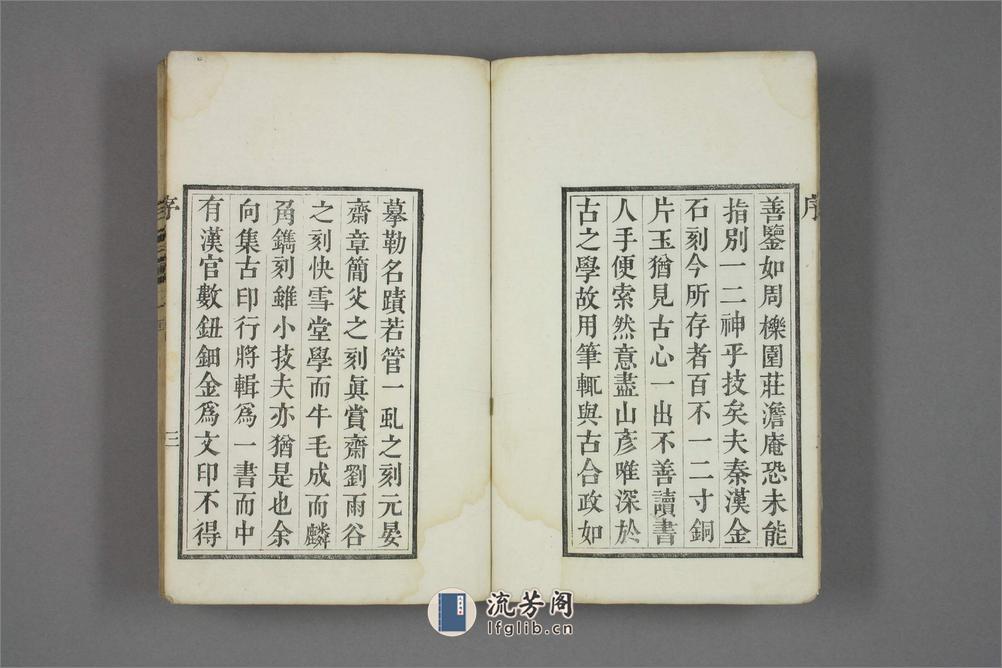 序
善鑒如周櫟園莊澹庵恐未能
指別一二神乎技矣夫秦漢金
石刻今所存者百不一二寸銅
片玉猶見古心一出不善讀書
人手便索然意盡山彥唯深於
古之學故用筆輒與古合政如
摹勒名蹟若管一虬之刻元晏
齋章簡父之刻眞賞齋劉雨谷
之刻快雪堂學而牛毛成而麟
角鐫刻雖小技夫亦猶是也余
向集古印行將輯爲一書而中
有漢官數鈕鈿金爲文印不得
序
三
流芳阁
lfglib.cn